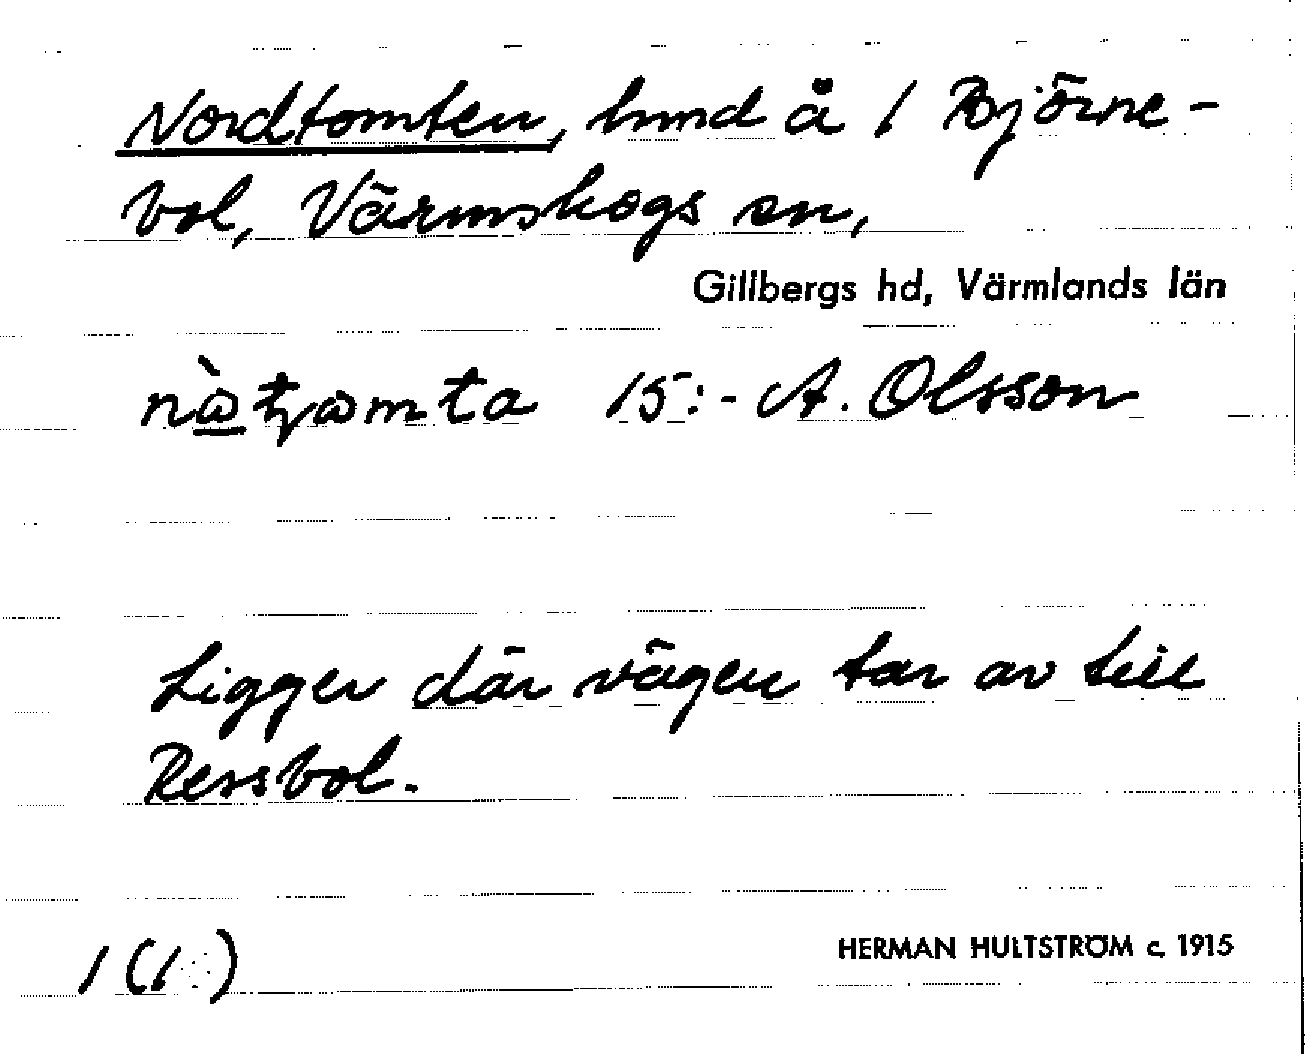 Nordtomten, hmd å 1 Björne-
bol, Värmskogs sn,
Gillbergs hd, Värmlands län
15:- A. Olsson
Ligger där vägen tar av till
Ressbol.
1 (1
HERMAN HULTSTRÖM c. 1915